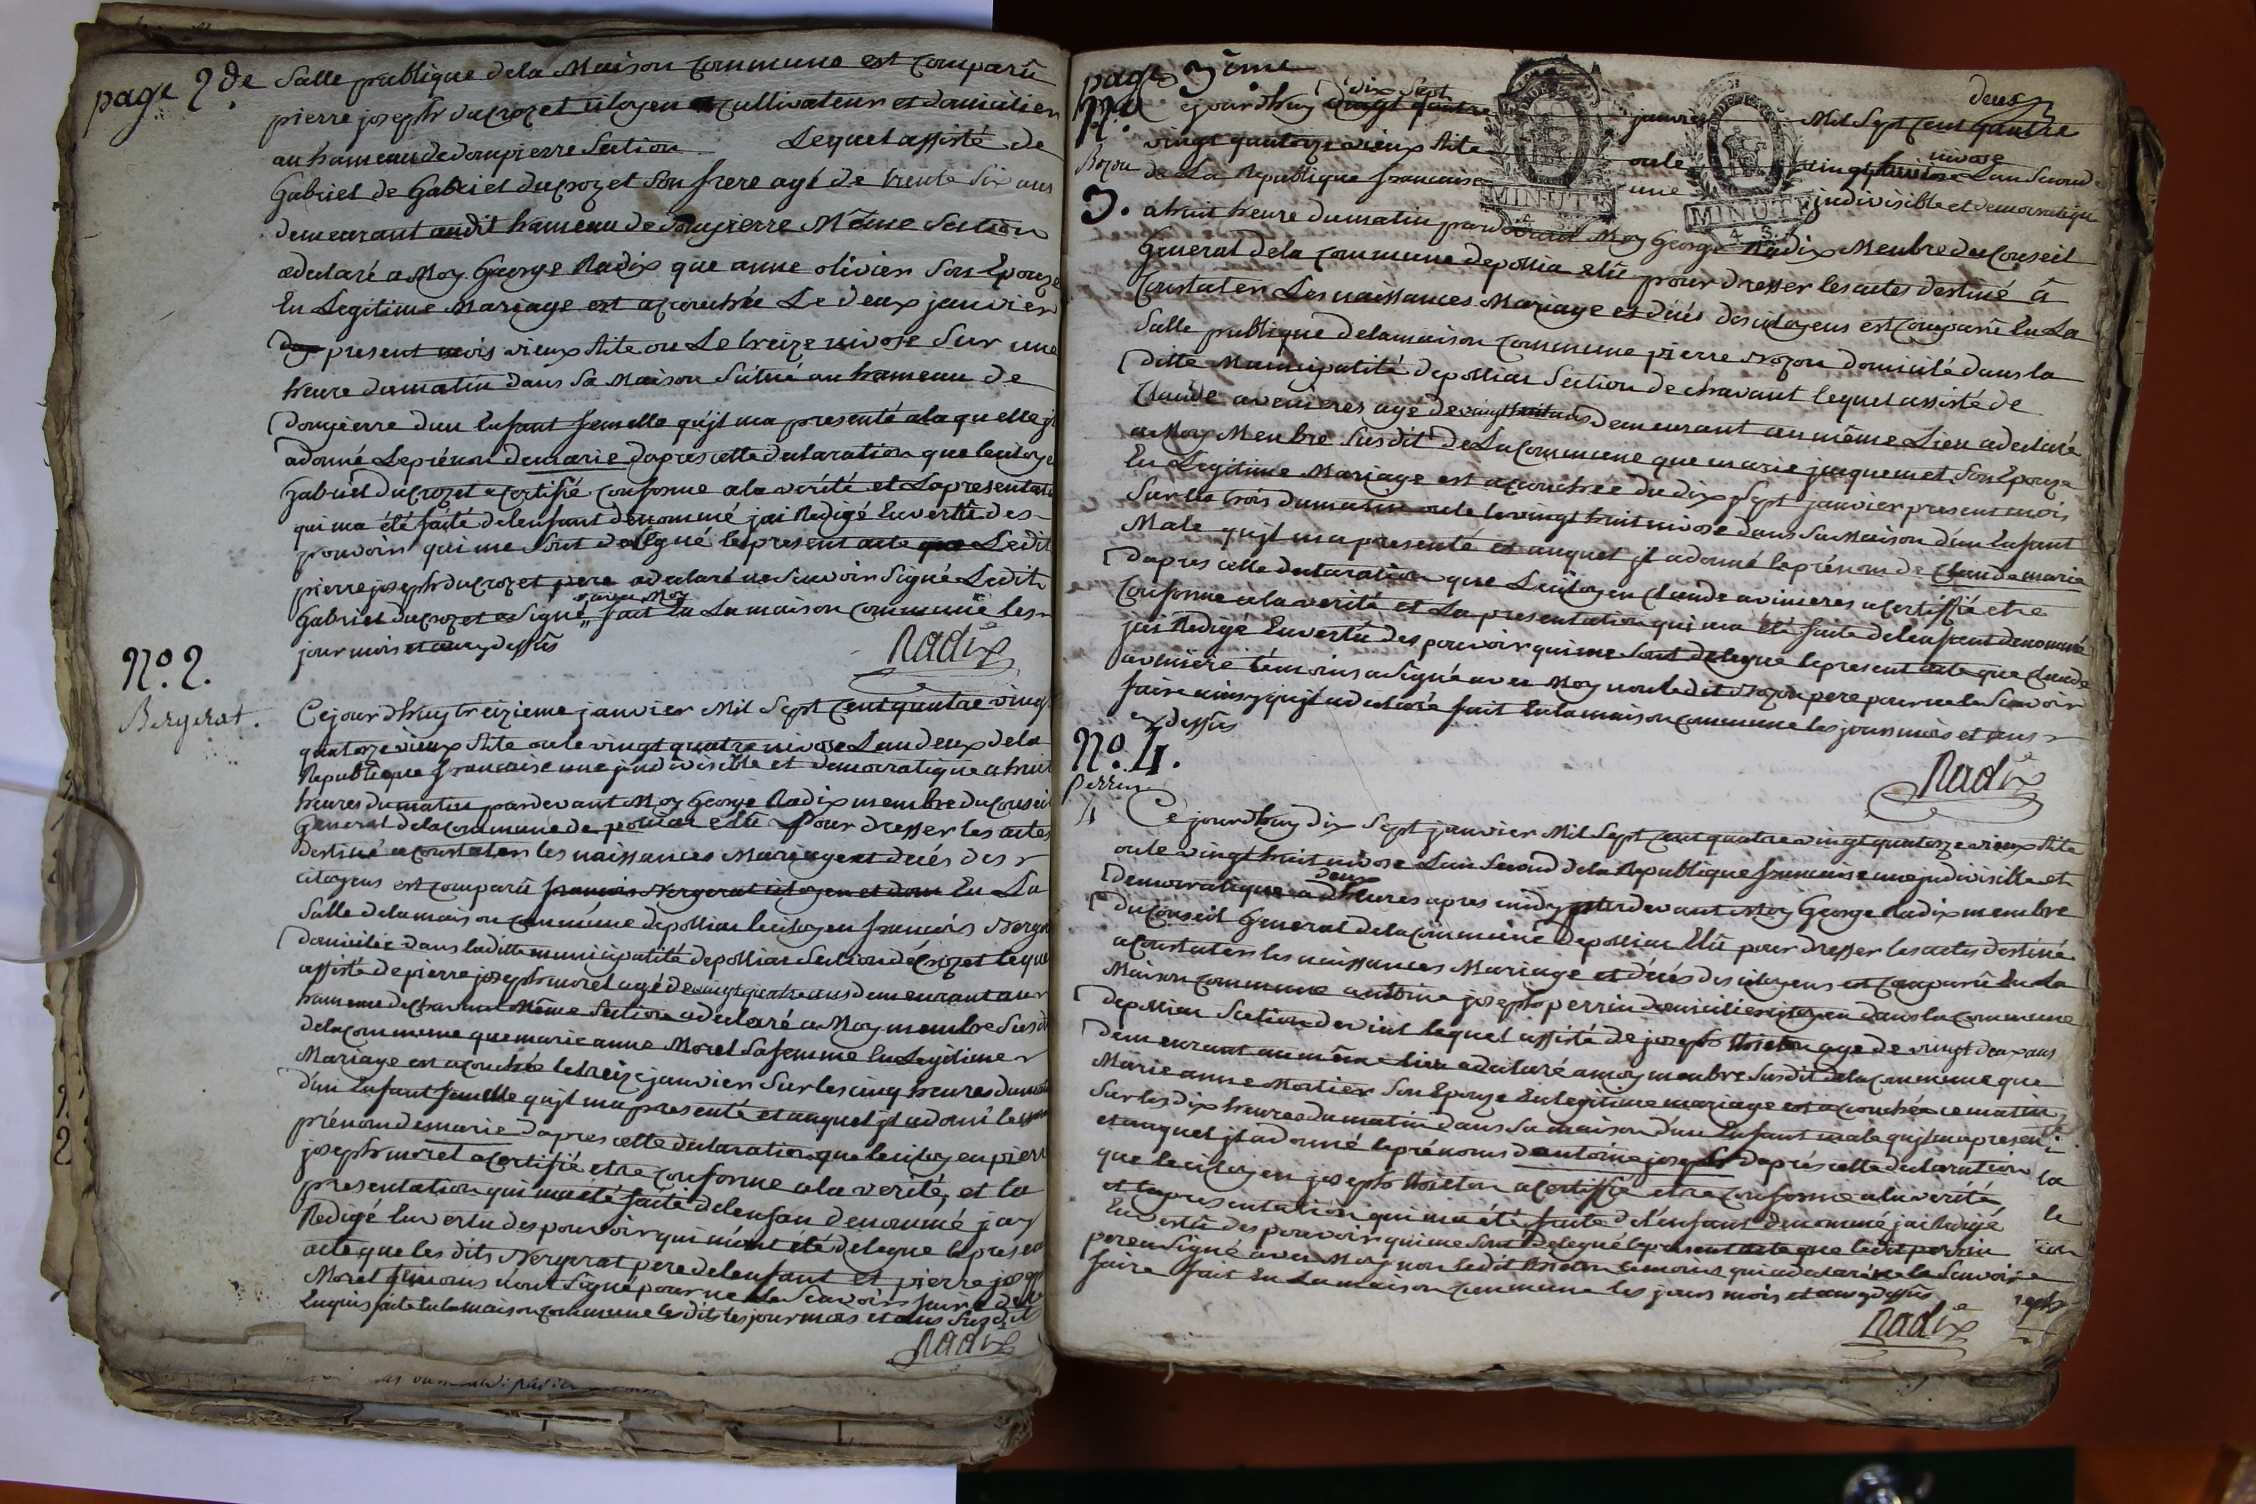 page 2de
Salle publique dela Maison Commune est Comparu
pierre joseph ducrozet citoyen cultivateur et domicilier
au hameau de dompierre Section Lequel assisté de
Gabriel de Gabriel ducrozet Son frere agé de trente Six ans
demeurant audit hameau de dompierre Même Section
adeclaré a Moy George Radix que anne olivier Son Epouze
En Legitime Mariage est acouchée Le deux janvier
present mois vieux Stile ou Le treize nivose Sur une
heure dumatin dans Sa Maison Situé au hameau de
dompierre dun Enfant femelle qujl ma presenté alaquelle jl
adonné Leprénom demarie dapres cette declaration que lecitoye
Gabriel ducrozet a Certifié Conforme ala vérité et Lapresentati
qui ma été faite delenfant denommé jai Redigé Envertu des
pouvoir qui me Sont delegué lepresent acte Ledit
pierre joseph ducrozet pere adeclaré ne Scavoir Signé Ledit
Gabriel ducrozet a Signé avec Moy fait En La maison Commune les
jour mois et an cy dessus
Radix
No. 2.
Bergerat.
Cejourdhuy treizieme janvier Mil Sept Cent quatre vingt
quatorze vieux Stile ou le vingt quatre nivose Lan deux dela
Republique francaise une jndivisible et democratique a huit
heures du matin pardevant Moy George Radix membre du Conseil
General dela Commune de polliat elû Pour dresser les actes
destiné a Constater les naissances Mariage et décés des
citoyens est Comparu francois Bergerat citoyen et dom En La
Salle dela maison Commune de polliat lecitoyen francois Berger
domicilié dans laditte municipalité de polliat Section de Crozet leque
assisté de pierre joseph morel agé de vingt quatre ans demeurant au
hameau de Chavant Même Section adeclaré a Moy membre Susdit
dela Commune que marie anne Morel Sa femme En Legitime
Mariage est acouchée le treize janvier Sur les cinq heures du matin
d'un Enfant femelle qujl ma presenté et auquel jl adonné le
prénom demarie dapres cette declaration que lecitoyen pierre
joseph morel a Certifié etre Conforme ala verité, et la
presentation qui ma été faite delenfan denommé jay
Redigé Envertu des pouvoir qui m'ont été delegué le present
acte que les dits Bergerat pere delenfant et pierre joseph
Morel témoins n'ont Signé pour ne le Scavoir faire de ce
Enquis fait En la maison Commune lesdits les jour mois et ans Susdit
Radix
page 3eme
deux
No.
Bozon
3.
cejourdhuy vingt quatre dix Sept janvier Mil Sept Cent quatre
vingt quatorze vieux Stile ou le vingt huit nivose Lan Second
de La Republique francaise une jndivisible et democratique
MINUTE
MINUTE
4. S.
a huit heure du matin pardevant Moy George Radix Membre du Conseil
General dela Commune de pollia elû pour dresser les actes destiné â
Constater Les naissances Mariage et décés des citoyens est Comparu En La
Salle publique dela maison Commune pierre Bozon domicilé dans la
ditte Municipalité de polliat Section de chavant lequel assisté de
Claude avenieres agé de vingt huit ans demeurant au même Lieu adeclaré
a Moy Menbre Susdit De La Commune que marie jaquemet Son Epouze
En Legitime Mariage est acouchée du dix Sept janvier present mois
Sur les trois du matin ou le levingt huit nivose dans Sa Maison d'un Enfant
Male qujl ma presenté et auquel jl adonné leprénom de Claude marie
dapres cette declaration que Lecitoyen Claude avinieres a Certiffié etre
Conforme ala verité et La presentation qui ma été faite delenfant denommé
jai Redigé Envertu des pouvoir qui me Sont delegue lepresent acte que Claude
aveniere témoins a Signé avec Moy non ledit Bozon pere pour ne le Scavoir
faire ainsy qujl adeclaré fait En la maison Commune les jours mois et ans
cy dessus
Radix
No. 4.
Perrin
4
Cejourdhuy dix Sept janvier Mil Sept Cent quatre vingt quatorze vieux Stile
ou le vingt huit nivose Lan Second dela Republique francaise une jndivisible et
democratique a deux heures apres midy pardevant Moy George Radix membre
du Conseil General dela Commune de polliat Elû pour dresser les actes destiné
a Constater les naissances Mariage et décés des citoyens est Comparû En La
Maison Commune antoine joseph perrin domicilier citoyen dans la Commune
de polliat Section de viat lequel assisté de joseph agé de vingt deux ans
demeurant au même lieu adeclaré a moy menbre Susdit dela Commune que
Marie anne Mortier Son Epouze En legitime mariage est acouchée ce matin
Sur les dix heures du matin dans Sa maison d'un Enfant male qujl ma presenté
et auquel jl adonné leprénoms dantoine joseph daprés cette declaration
que Lecitoyen joseph a Certiffié etre Conforme ala verité
et La presentation qui ma été faite del'enfant denommé jai Redigé
Envertu des pouvoir qui me Sont delegué lepresent acte que ledit perrin
pere a Signé avec Moy non ledit témoins qui adeclaré ne le Scavoir
faire fait En La maison Commune les jours mois et an cy dessus
Radix